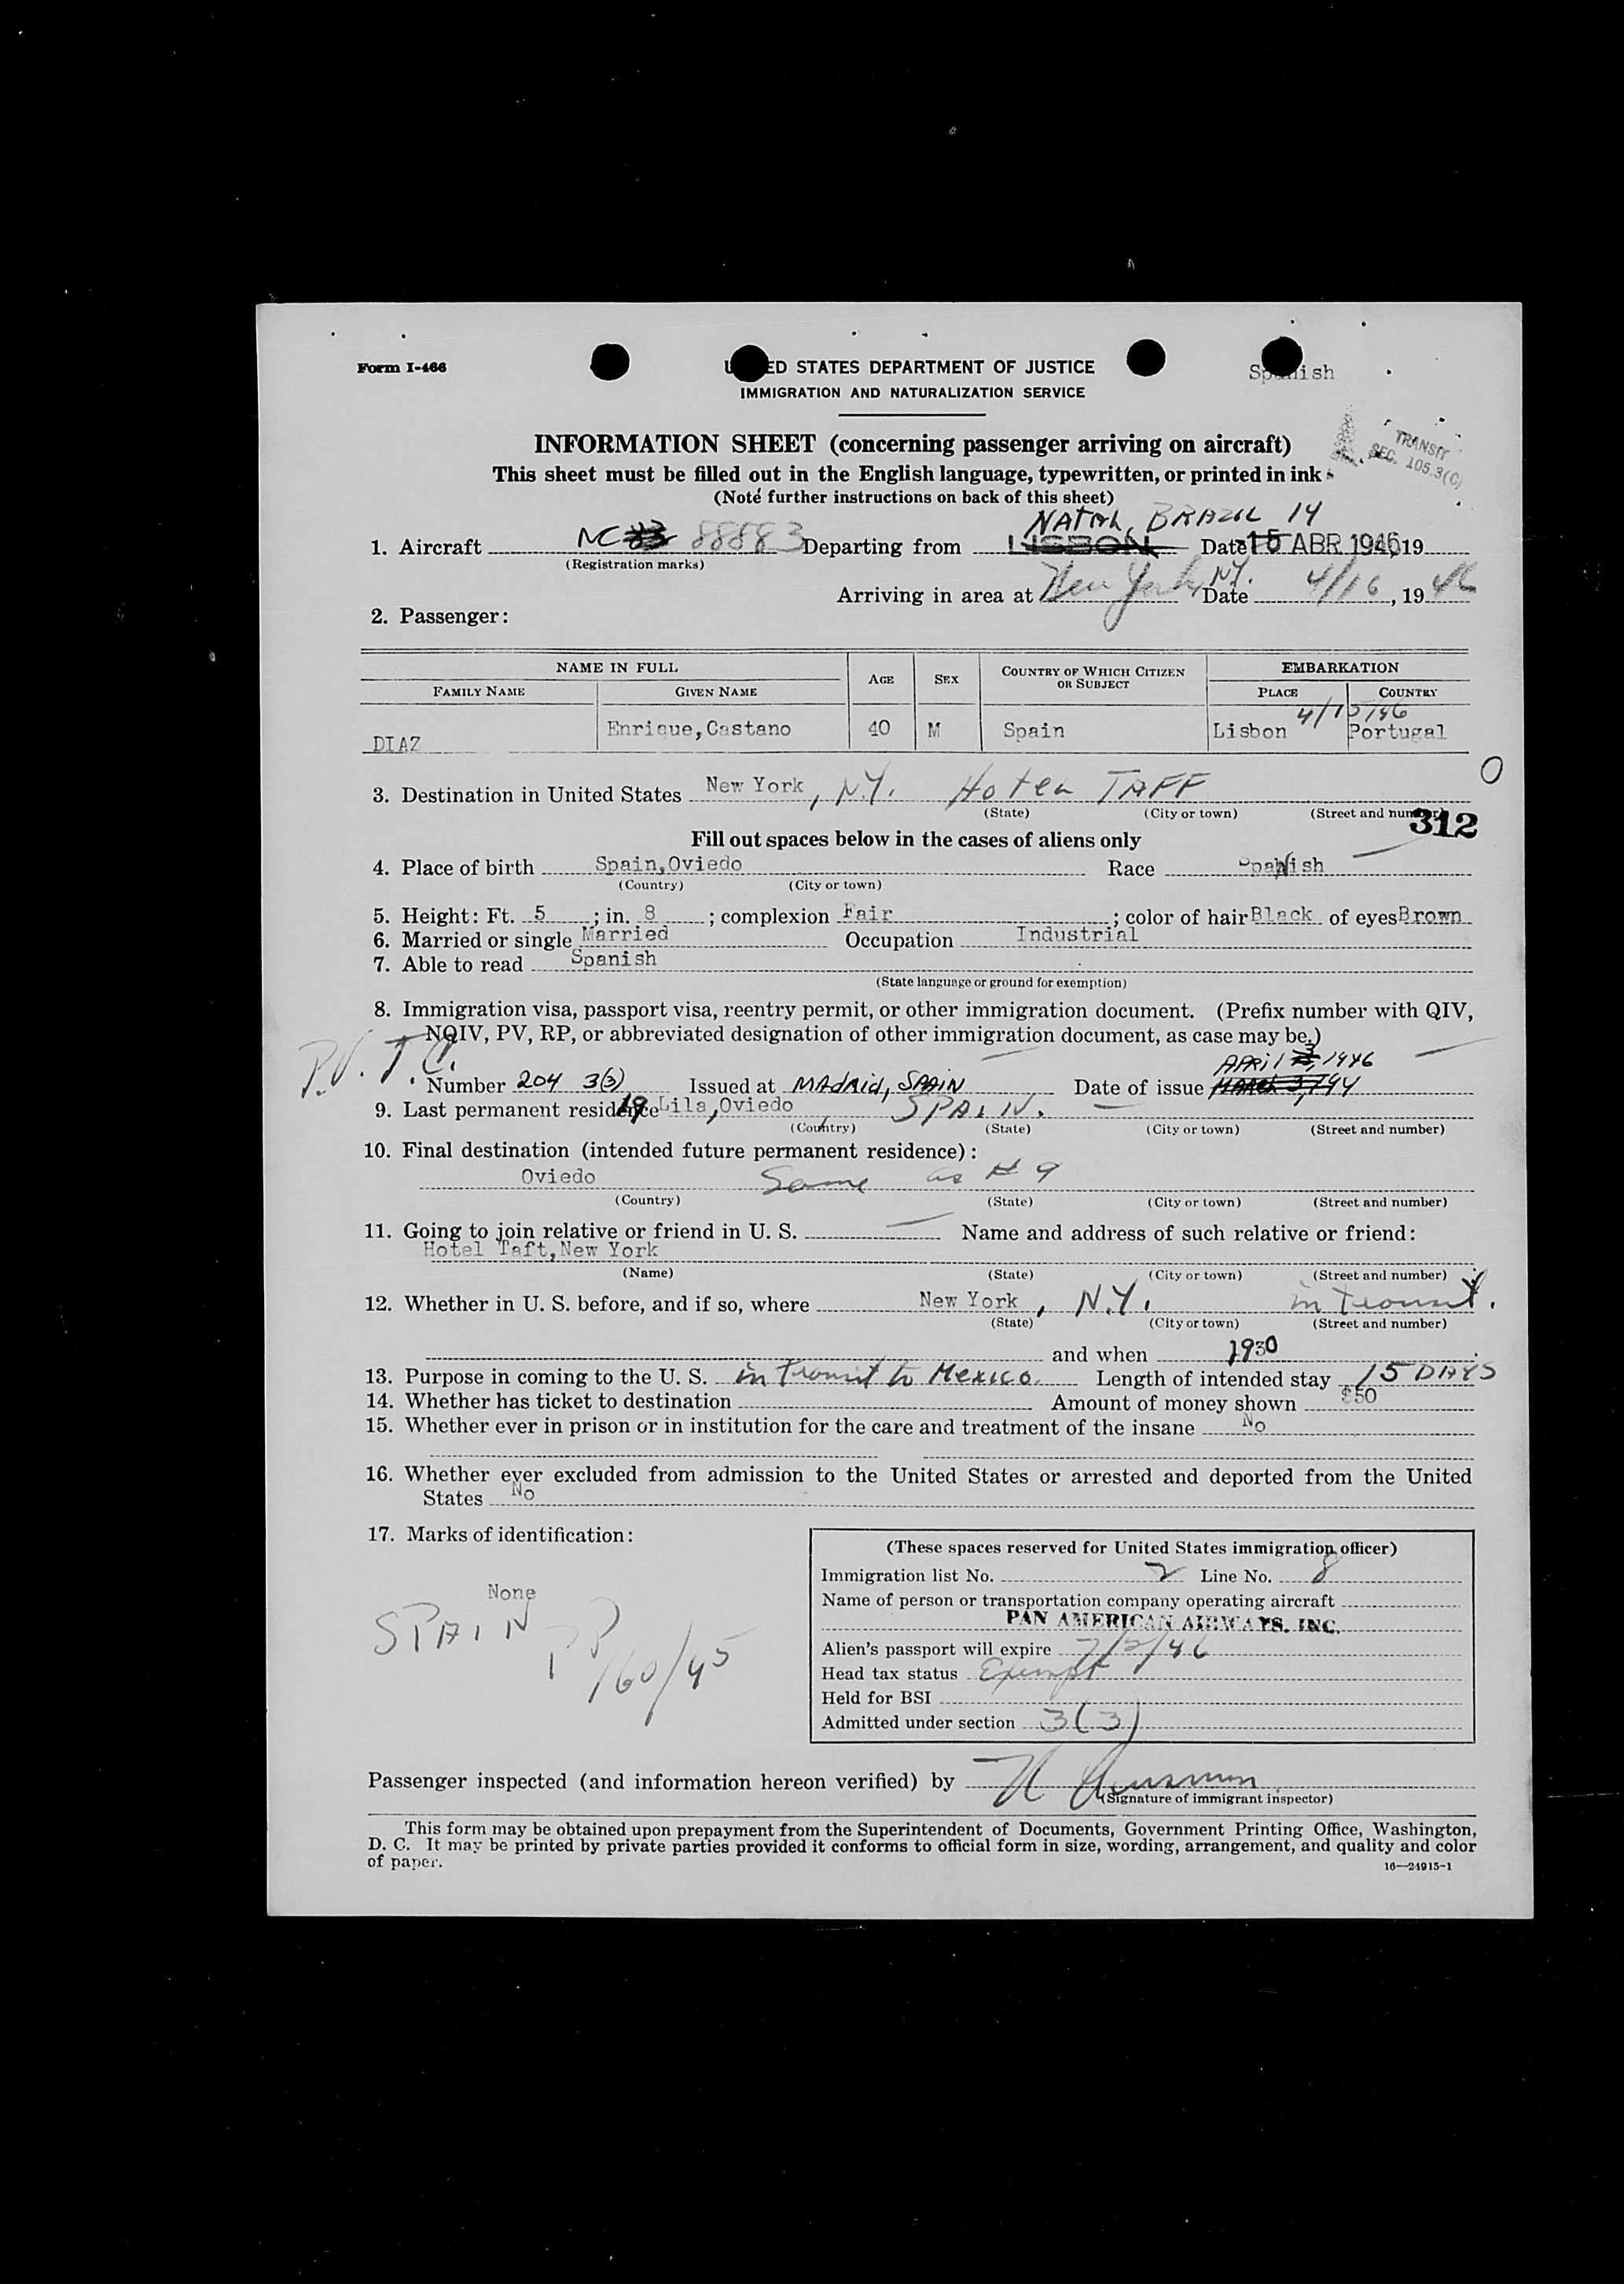 Form I-466
ED STATES DEPARTMENT OF JUSTICE
Spanish
IMMIGRATION AND NATURALIZATION SERVICE
INFORMATION SHEET (concerning passenger arriving on aircraft)
TRANSIT
SEC. 105.3(C)
This sheet must be filled out in the English language, typewritten, or printed in ink
(Note further instructions on back of this sheet)
NATAL, BRAZIL 14
1. Aircraft NC 88883 Departing from LISBON Date 15 ABR 1946 19
(Registration marks)
Arriving in area at New York, N.Y. Date 4/16, 1946
2. Passenger:
NAME IN FULL AGE SEX COUNTRY OF WHICH CITIZEN OR SUBJECT EMBARKATION
FAMILY NAME GIVEN NAME PLACE COUNTRY
DIAZ Enrique,Castano 40 M Spain Lisbon Portugal
3. Destination in United States New York, N.Y. Hotel TAFF
(State) (City or town) (Street and number)
312
Fill out spaces below in the cases of aliens only
4. Place of birth Spain,Oviedo Race Spanish
(Country) (City or town)
5. Height: Ft. 5; in. 8; complexion Fair; color of hair Black of eyes Brown
6. Married or single Married Occupation Industrial
7. Able to read Spanish
(State language or ground for exemption)
8. Immigration visa, passport visa, reentry permit, or other immigration document. (Prefix number with QIV,
NQIV, PV, RP, or abbreviated designation of other immigration document, as case may be.)
P.V. T.C.
APRIL 3, 1946
Number 204 3(3) Issued at MAdRid, SPAIN Date of issue
9. Last permanent residence 19 Lila,Oviedo SPAIN.
(Country) (State) (City or town) (Street and number)
10. Final destination (intended future permanent residence):
Oviedo Same as # 9
(Country) (State) (City or town) (Street and number)
11. Going to join relative or friend in U. S. — Name and address of such relative or friend:
Hotel Taft,New York
(Name) (State) (City or town) (Street and number)
12. Whether in U. S. before, and if so, where New York, N.Y. in transit.
(State) (City or town) (Street and number)
and when 1930
13. Purpose in coming to the U. S. in transit to Mexico. Length of intended stay 15 DAYS
14. Whether has ticket to destination Amount of money shown $50
15. Whether ever in prison or in institution for the care and treatment of the insane No
16. Whether ever excluded from admission to the United States or arrested and deported from the United
States No
17. Marks of identification:
None
SPAIN PP 160/45
(These spaces reserved for United States immigration officer)
Immigration list No. 2 Line No. 8
Name of person or transportation company operating aircraft
PAN AMERICAN AIRWAYS. INC.
Alien's passport will expire 7/2/46
Head tax status Exempt
Held for BSI
Admitted under section 3(3)
Passenger inspected (and information hereon verified) by
(Signature of immigrant inspector)
This form may be obtained upon prepayment from the Superintendent of Documents, Government Printing Office, Washington,
D. C. It may be printed by private parties provided it conforms to official form in size, wording, arrangement, and quality and color
of paper.
16—24915-1